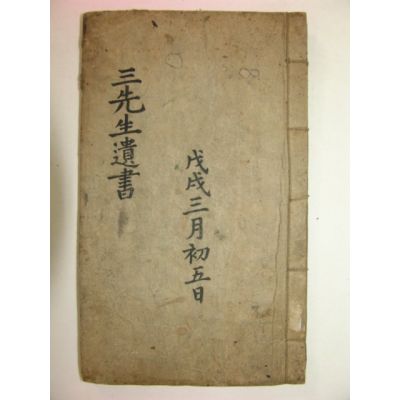 三先生遺書
戊戌三月初五日